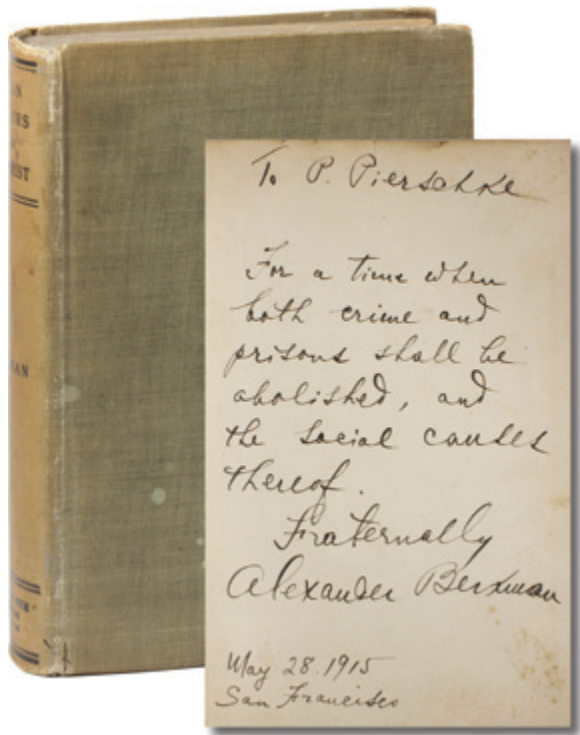 To P. Pierschke
For a time when
both crime and
prisons shall be
abolished, and
the social causes
thereof.
Fraternally
Alexander Berkman
May 28. 1915
San Francisco